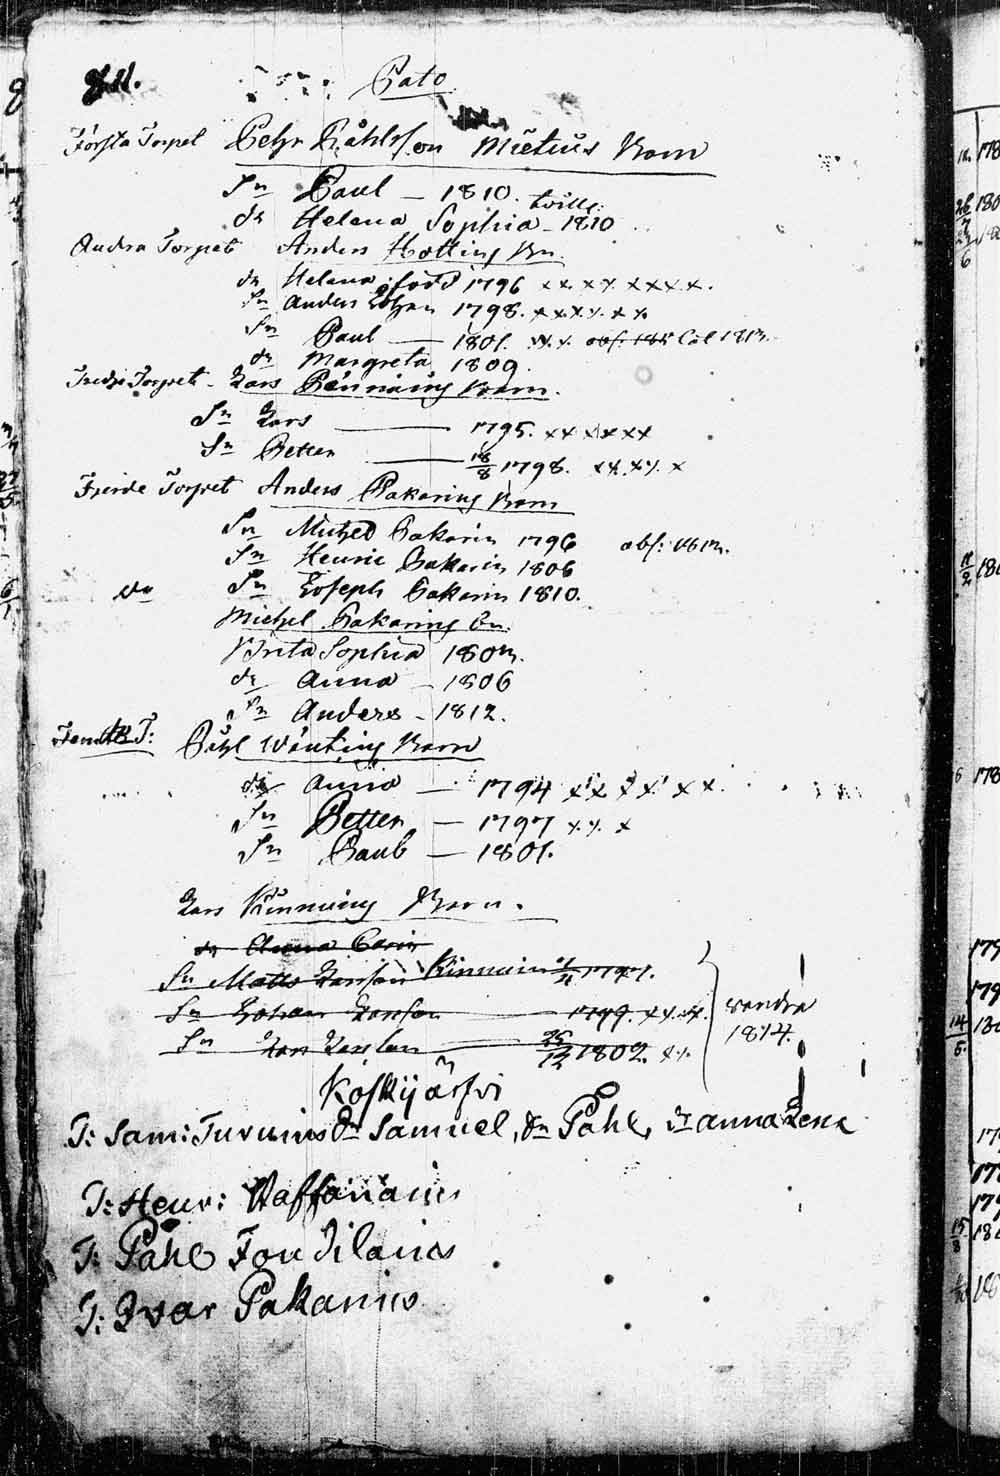 Pato
Första Torpet Pehr Påhlsson Mietius Barn
Sn Paul — 1810. tvill:
dr Helena Sophia — 1810
Andra Torpet Anders Hotting Bn.
dr Helena född 1796 x x x x x x x x.
Sn Anders Johan 1798. x x x x. x x.
Sn Paul — 1801. x x x. Cal 1813.
dr Margreta 1809.
Tredje Torpet. Lars Pänning Barn.
Sn Lars — 1795. x x x x x x
Sn Petter — 18/8 1798. x x. x x. x
Fierde Torpet Anders Pakaring Barn
Sn Michel Pakarin 1796 abs: 1813.
Sn Henric Pakarin 1806
dn Sn Joseph Pakarin 1810.
Michel Pakaring Bn.
Brita Sophia 1803.
dr Anna — 1806
Sn Anders — 1812.
Femte T: Påhl Wänting Barn
dr Anna — 1794 x x x x x x.
Sn Petter — 1797 x. x. x
Sn Paul — 1801.
Lars Kinnuing Barn.
dr Anna Carin
Sn Matts Larsson Kinnuin 1797.
Sn Johan Larsson — 1799. x x. x x.
Sn Lars Larsson — 26/12 1802. x x.
vandra
1814.
Koskijärfvi
T: Sam: Turunius dn Samuel, dn Påhl, dr anna Lena
T: Henr:
T: Påhl
T: Ivar Pakanius